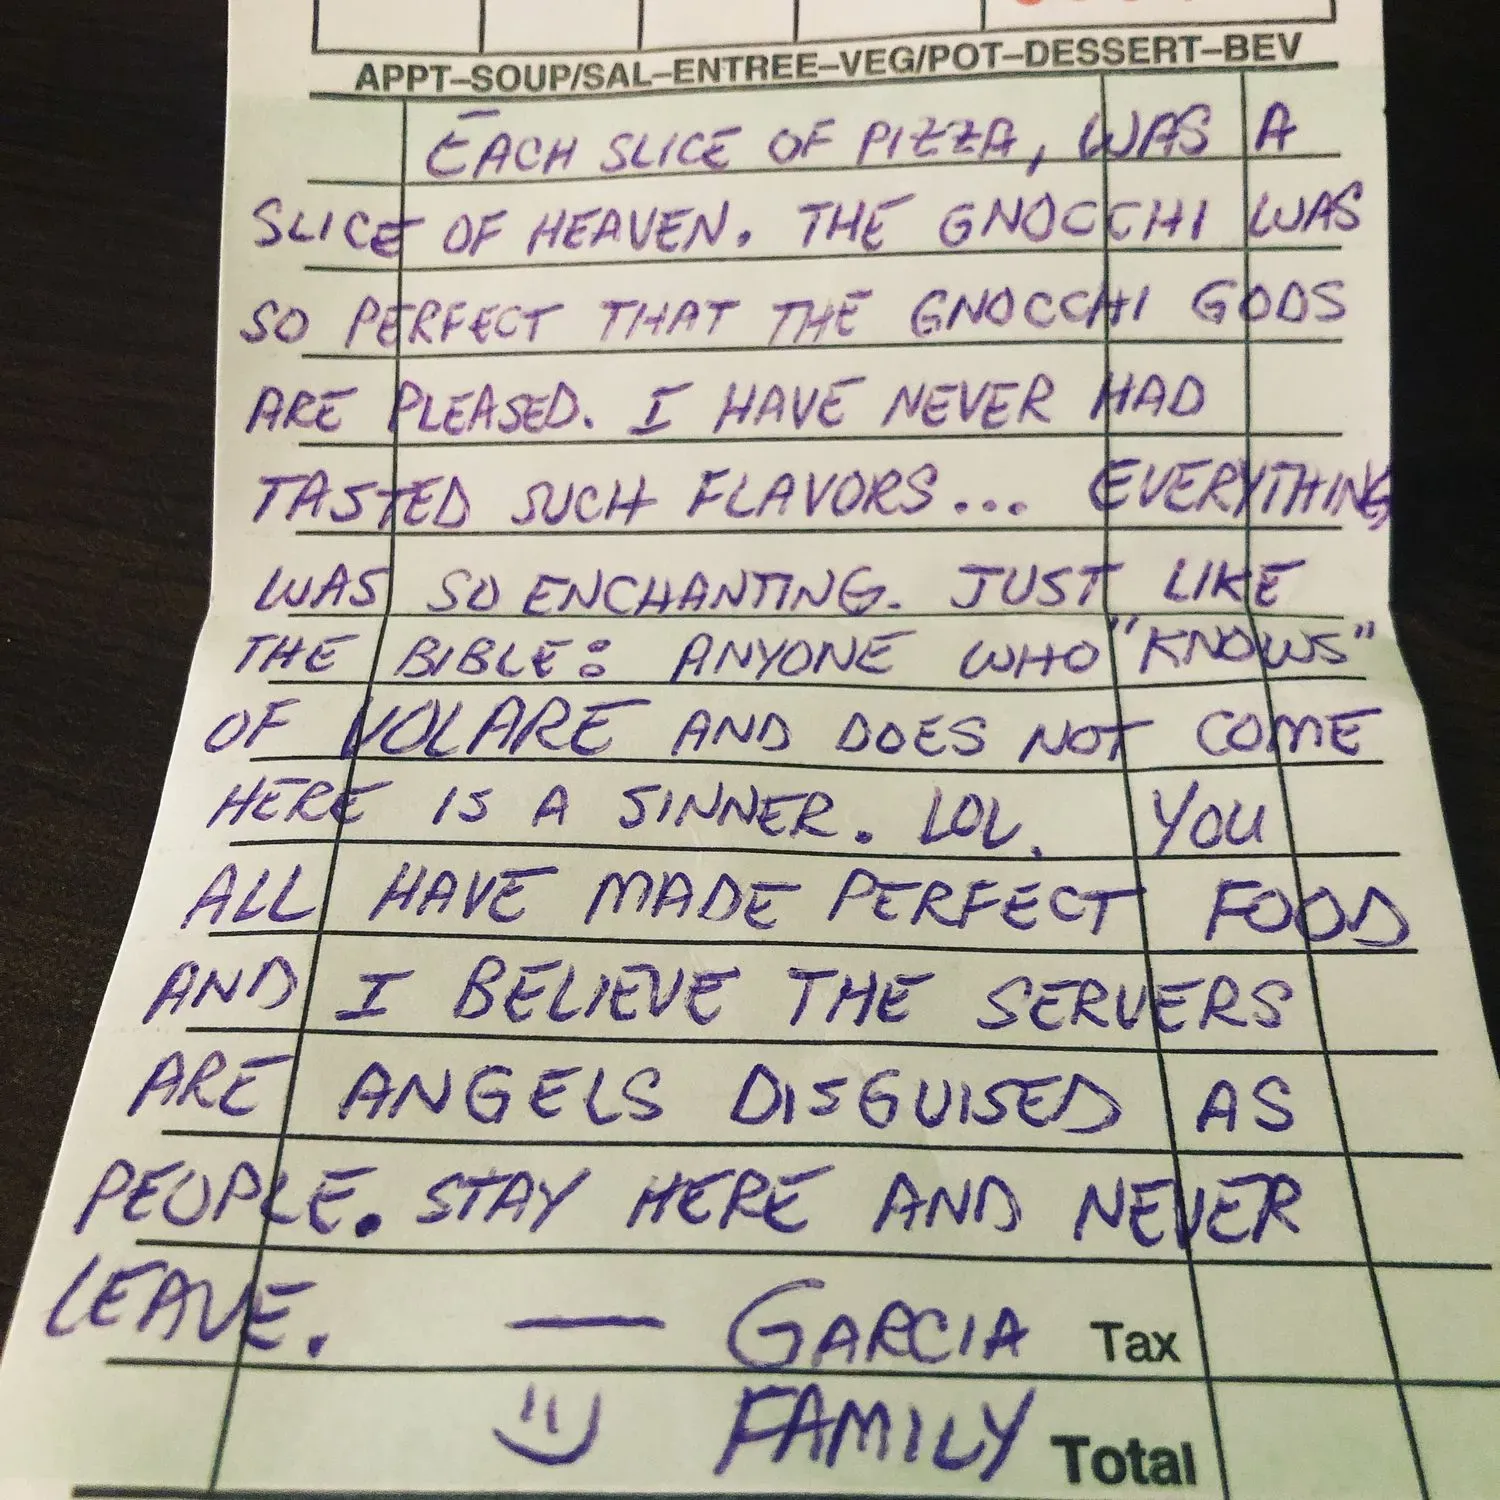 APPT–SOUP/SAL–ENTREE–VEG/POT–DESSERT–BEV
EACH SLICE OF PIZZA, WAS A
SLICE OF HEAVEN. THE GNOCCHI WAS
SO PERFECT THAT THE GNOCCHI GODS
ARE PLEASED. I HAVE NEVER HAD
TASTED SUCH FLAVORS... EVERYTHING
WAS SO ENCHANTING. JUST LIKE
THE BIBLE: ANYONE WHO "KNOWS"
OF VOLARE AND DOES NOT COME
HERE IS A SINNER. LOL. YOU
ALL HAVE MADE PERFECT FOOD
AND I BELIEVE THE SERVERS
ARE ANGELS DISGUISED AS
PEOPLE. STAY HERE AND NEVER
LEAVE. — GARCIA Tax
FAMILY Total